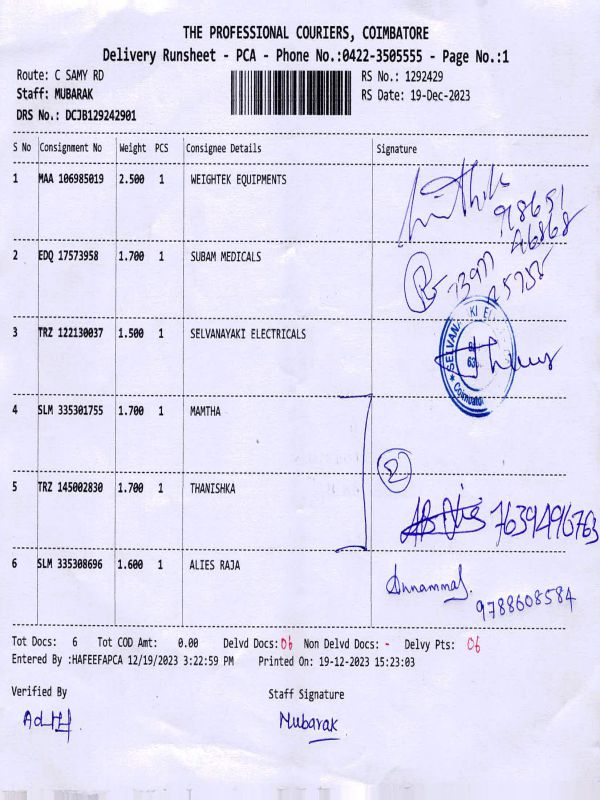 THE PROFESSIONAL COURIERS, COIMBATORE
Delivery Runsheet - PCA - Phone No.:0422-3505555 - Page No.:1
Route: C SAMY RD RS No.: 1292429
Staff: MUBARAK RS Date: 19-Dec-2023
DRS No.: DCJB129242901
S No Consignment No Weight PCS Consignee Details Signature
1 MAA 106985019 2.500 1 WEIGHTEK EQUIPMENTS
98651
46868
2 EDQ 17573958 1.700 1 SUBAM MEDICALS
3 TRZ 122130037 1.500 1 SELVANAYAKI ELECTRICALS
4 SLM 335301755 1.700 1 MAMTHA
2
5 TRZ 145002830 1.700 1 THANISHKA
7639496763
6 SLM 335308696 1.600 1 ALIES RAJA
Annammal
9788608584
Tot Docs: 6 Tot COD Amt: 0.00 Delvd Docs: 06 Non Delvd Docs: - Delvy Pts: 06
Entered By :HAFEEFAPCA 12/19/2023 3:22:59 PM Printed On: 19-12-2023 15:23:03
Verified By Staff Signature
Mubarak